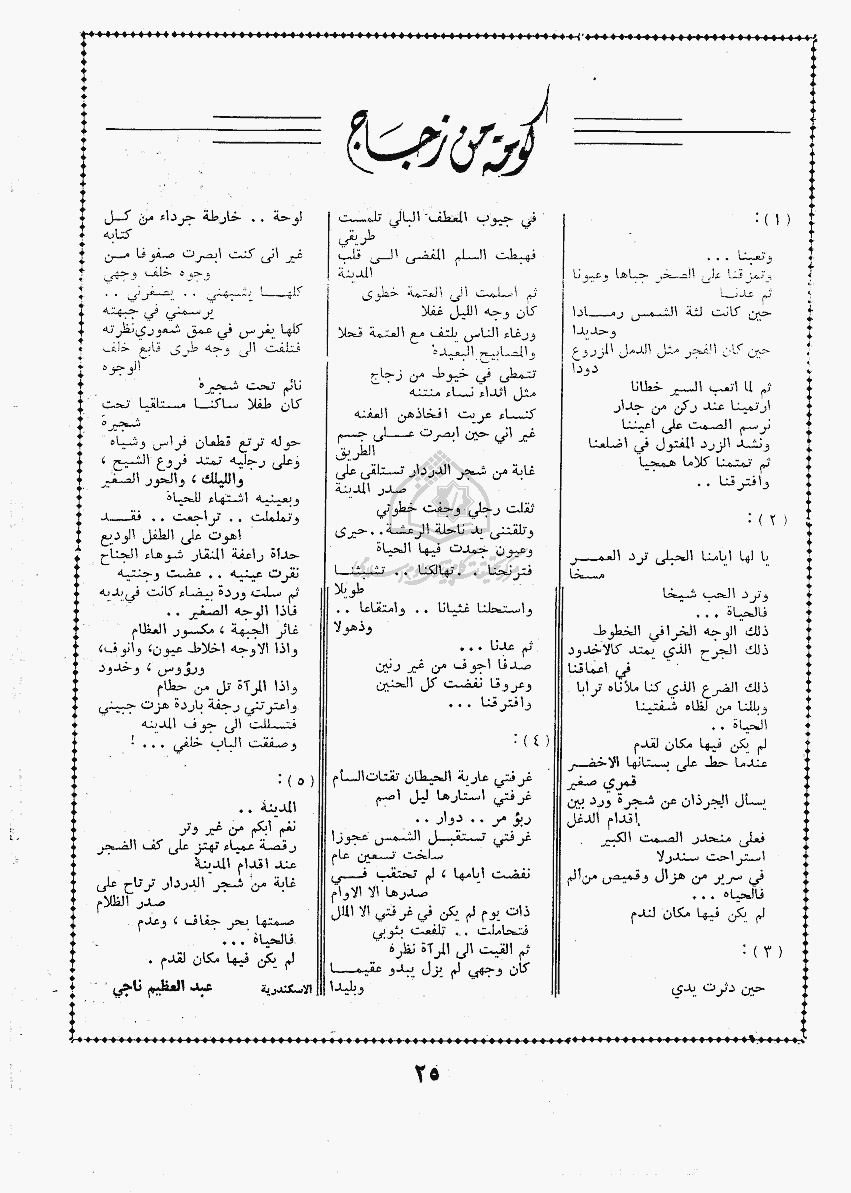 كومة من زجاج
(١) :
وتعبنا ...
وتمزقنا على الصخر جباها وعيونا
ثم عدنـا
حين كانت لثة الشمس رمـــادا
وحديدا
حين كان الفجر مثل الدمل المزروع
دودا
ثم لما اتعب السير خطانا
ارتمينا عند ركن من جدار
نرسم الصمت على اعيننا
ونشد الزرد المفتول في اضلعنا
ثم تمتمنا كلاما همجيا
وافترقنا ..
(٢) :
يا لها ايامنا الحبلى ترد العمـــر
مسخا
وترد الحب شيخا
فالحياة ...
ذلك الوجه الخرافي الخطوط
ذلك الجرح الذي يمتد كالاخدود
في اعماقنا
ذلك الضرع الذي كنا ملأناه ترابا
وبللنا من لظاه شفتينا
الحياة ..
لم يكن فيها مكان لقدم
عندما حط على بستانها الاخضـر
قمري صغير
يسأل الجرذان عن شجرة ورد بين
اقدام الدغل
فعلى منحدر الصمت الكبير
استراحت سندرلا
في سرير من هزال وقميص من الم
فالحياه ...
لم يكن فيها مكان لندم
(٣) :
حين دثرت يدي
في جيوب المعطف البالي تلمست
طريقي
فهبطت السلم المفضى الـى قلب
المدينة
ثم اسلمت الى العتمة خطوى
كان وجه الليل غفلا
ورغاء الناس يلتف مع العتمة قحلا
والمصابيح البعيدة
تتمطى في خيوط من زجاج
مثل اثداء نساء منتنه
كنساء عريت افخاذهن العفنه
غير اني حين ابصرت عــلى جسم
الطريق
غابة من شجر الدردار تستلقى على
صدر المدينة
ثقلت رجلي وجفت خطوتي
وتلقتنى يد ناحلة الرعشة..حيرى
وعيون جمدت فيها الحياة
فترنحنا . . تهالكنا .. تشبثنـا
طويلا
واستحلنا غثيانا .. وامتقاعا ..
وذهولا
ثم عدنا ...
صدفا اجوف من غير رنين
وعروقا نفضت كل الحنين
وافترقنا ...
(٤) :
غرفتي عارية الحيطان تقتات السأم
غرفتي استارها ليل اصم
ربؤ مر .. دوار ..
غرفتي تستقبـل الشمس عجوزا
سلخت تسعين عام
نفضت ايامها ، لم تحتقب فــي
صدرها الا الاوام
ذات يوم لم يكن في غرفتي الا الملل
فتحاملت .. تلفعت بثوبي
ثم القيت الى المرآة نظرة
كان وجهي لم يزل يبدو عقيمـــا
وبليدا
لوحة .. خارطة جرداء من كـل
كتابه
غير انى كنت ابصرت صفوفا مـن
وجوه خلف وجهي
كلهــا يشبهني .. يصغرني ..
يرسمني في جبهته
كلها يغرس في عمق شعوري نظرته
فتلفت الى وجه طرى قابع خلف
الوجوه
نائم تحت شجيرة
كان طفلا ساكنـا مستلقيا تحت
شجيرة
حوله ترتع قطعان فراس وشياه
وعلى رجليه تمتد فروع الشيح ،
والليلك ، والحور الصغير
وبعينيه اشتهاء للحياة
وتململت .. تراجعت .. فقــد
اهوت على الطفل الوديع
حدأة راعفة المنقار شوهاء الجناح
نقرت عينيه .. عضت وجنتيه
ثم سلت وردة بيضاء كانت في يديه
فاذا الوجه الصغير ..
غائر الجبهة ، مكسور العظام
واذا الاوجه اخلاط عيون، وانوف،
ورؤوس ، وخدود
واذا المرآة تل من حطام
واعترتني رجفة باردة هزت جبيني
فتسللت الى جوف المدينه
وصفقت الباب خلفي ... !
(٥) :
المدينة ..
نغم أبكم من غير وتر
رقصة عمياء تهتز على كف الضجر
عند اقدام المدينة
غابة من شجر الدردار ترتاح على
صدر الظلام
صمتها بحر جفاف ، وعدم
فالحياة ...
لم يكن فيها مكان لقدم .
الاسكندرية عبد العظيم ناجي
٢٥